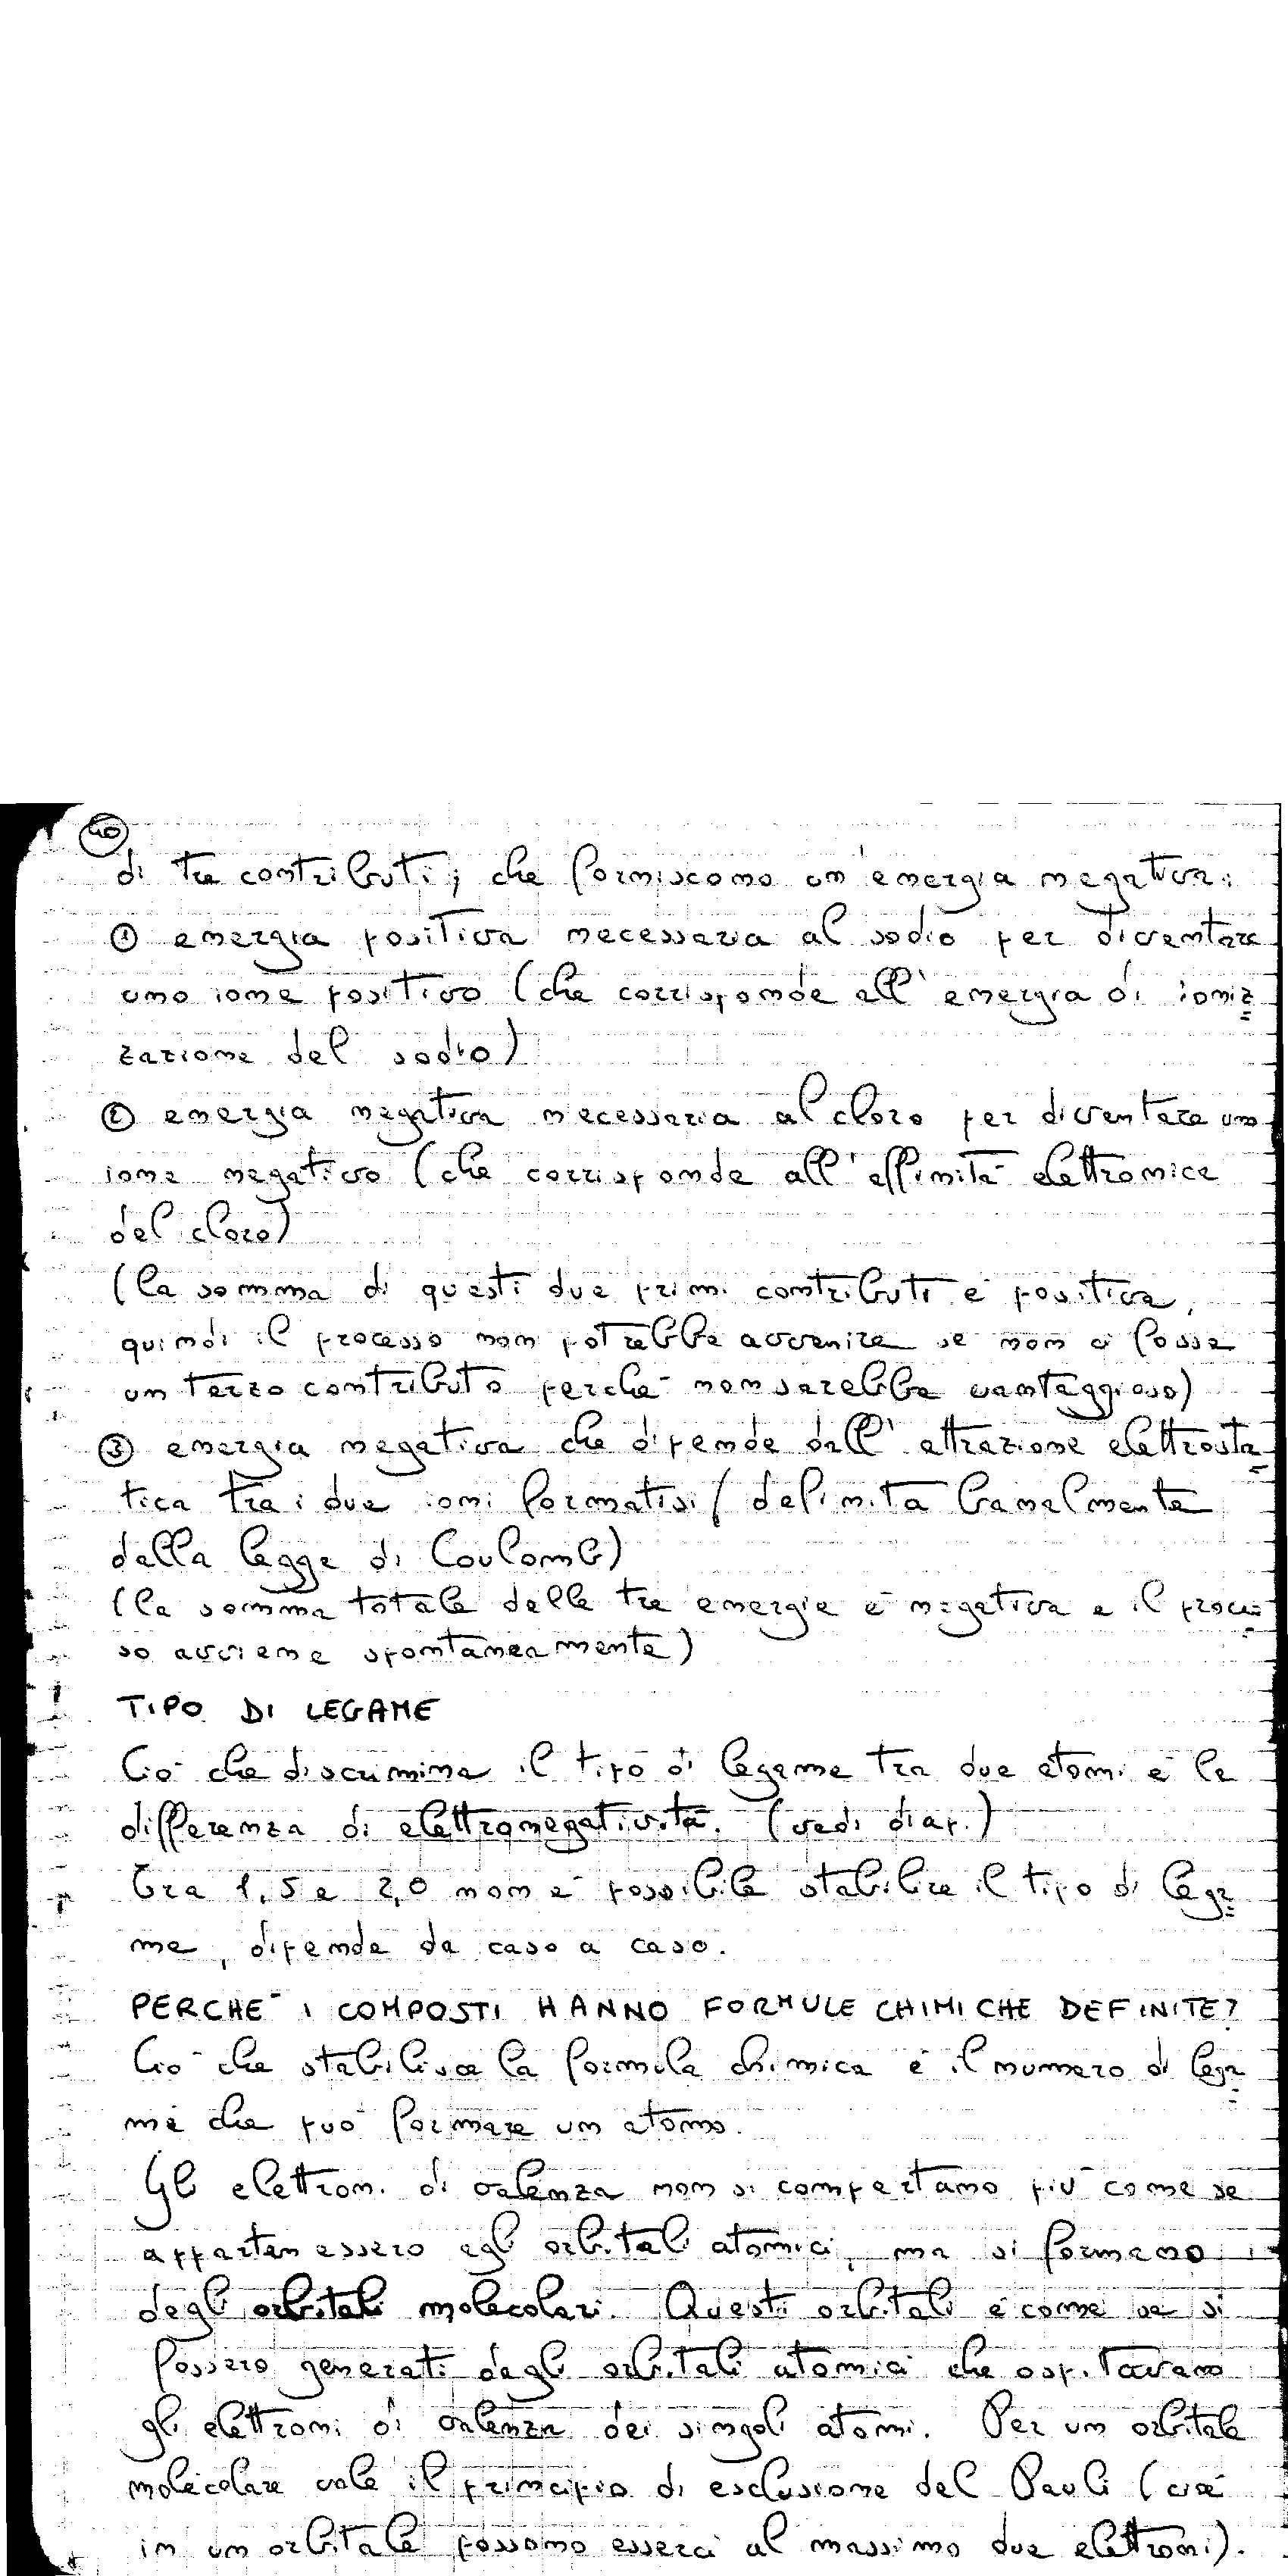 40
di tre contributi, che forniscono un'energia negativa:
① energia positiva necessaria al sodio per diventare
uno ione positivo (che corrisponde all'energia di ioniz=
zazione del sodio)
② energia negativa necessaria al cloro per diventare uno
ione negativo (che corrisponde all'affinità elettronica
del cloro)
(la somma di questi due primi contributi è positiva,
quindi il processo non potrebbe avvenire se non ci fosse
un terzo contributo perché non sarebbe vantaggioso)
③ energia negativa che dipende dall'attrazione elettrosta=
tica tra i due ioni formatisi (definita banalmente
dalla legge di Coulomb)
(la somma totale delle tre energie è negativa e il proces=
so avviene spontaneamente)
TIPO DI LEGAME
Ciò che discrimina il tipo di legame tra due atomi è la
differenza di elettronegatività. (vedi diap.)
Tra 1,5 e 2,0 non è possibile stabilire il tipo di lega=
me, dipende da caso a caso.
PERCHÉ I COMPOSTI HANNO FORMULE CHIMICHE DEFINITE?
Ciò che stabilisce la formula chimica è il numero di lega=
mi che può formare un atomo.
Gli elettroni di valenza non si comportano più come se
appartenessero agli orbitali atomici, ma si formano
degli orbitali molecolari. Questi orbitali è come se si
fossero generati dagli orbitali atomici che ospitavano
gli elettroni di valenza dei singoli atomi. Per un orbitale
molecolare vale il principio di esclusione del Pauli (cioè
in un orbitale possono esserci al massimo due elettroni).